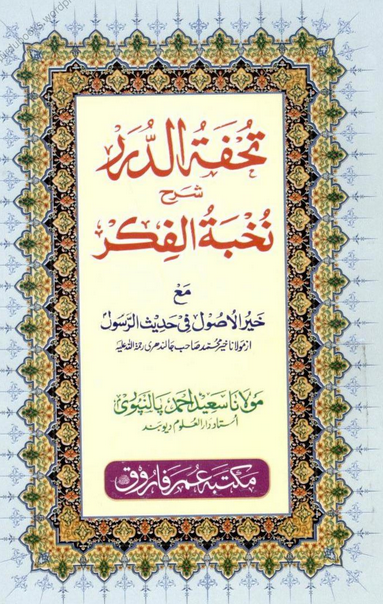 تحفۃ الدرر
شرح
نخبۃ الفکر
مع
خیر الاصول فی حدیث الرسول
از مولانا خیر محمد صاحب جالندھری رحمۃ اللہ علیہ
مولانا سعید احمد پالنپوری
استاد دار العلوم دیوبند
مکتبہ عمر فاروق